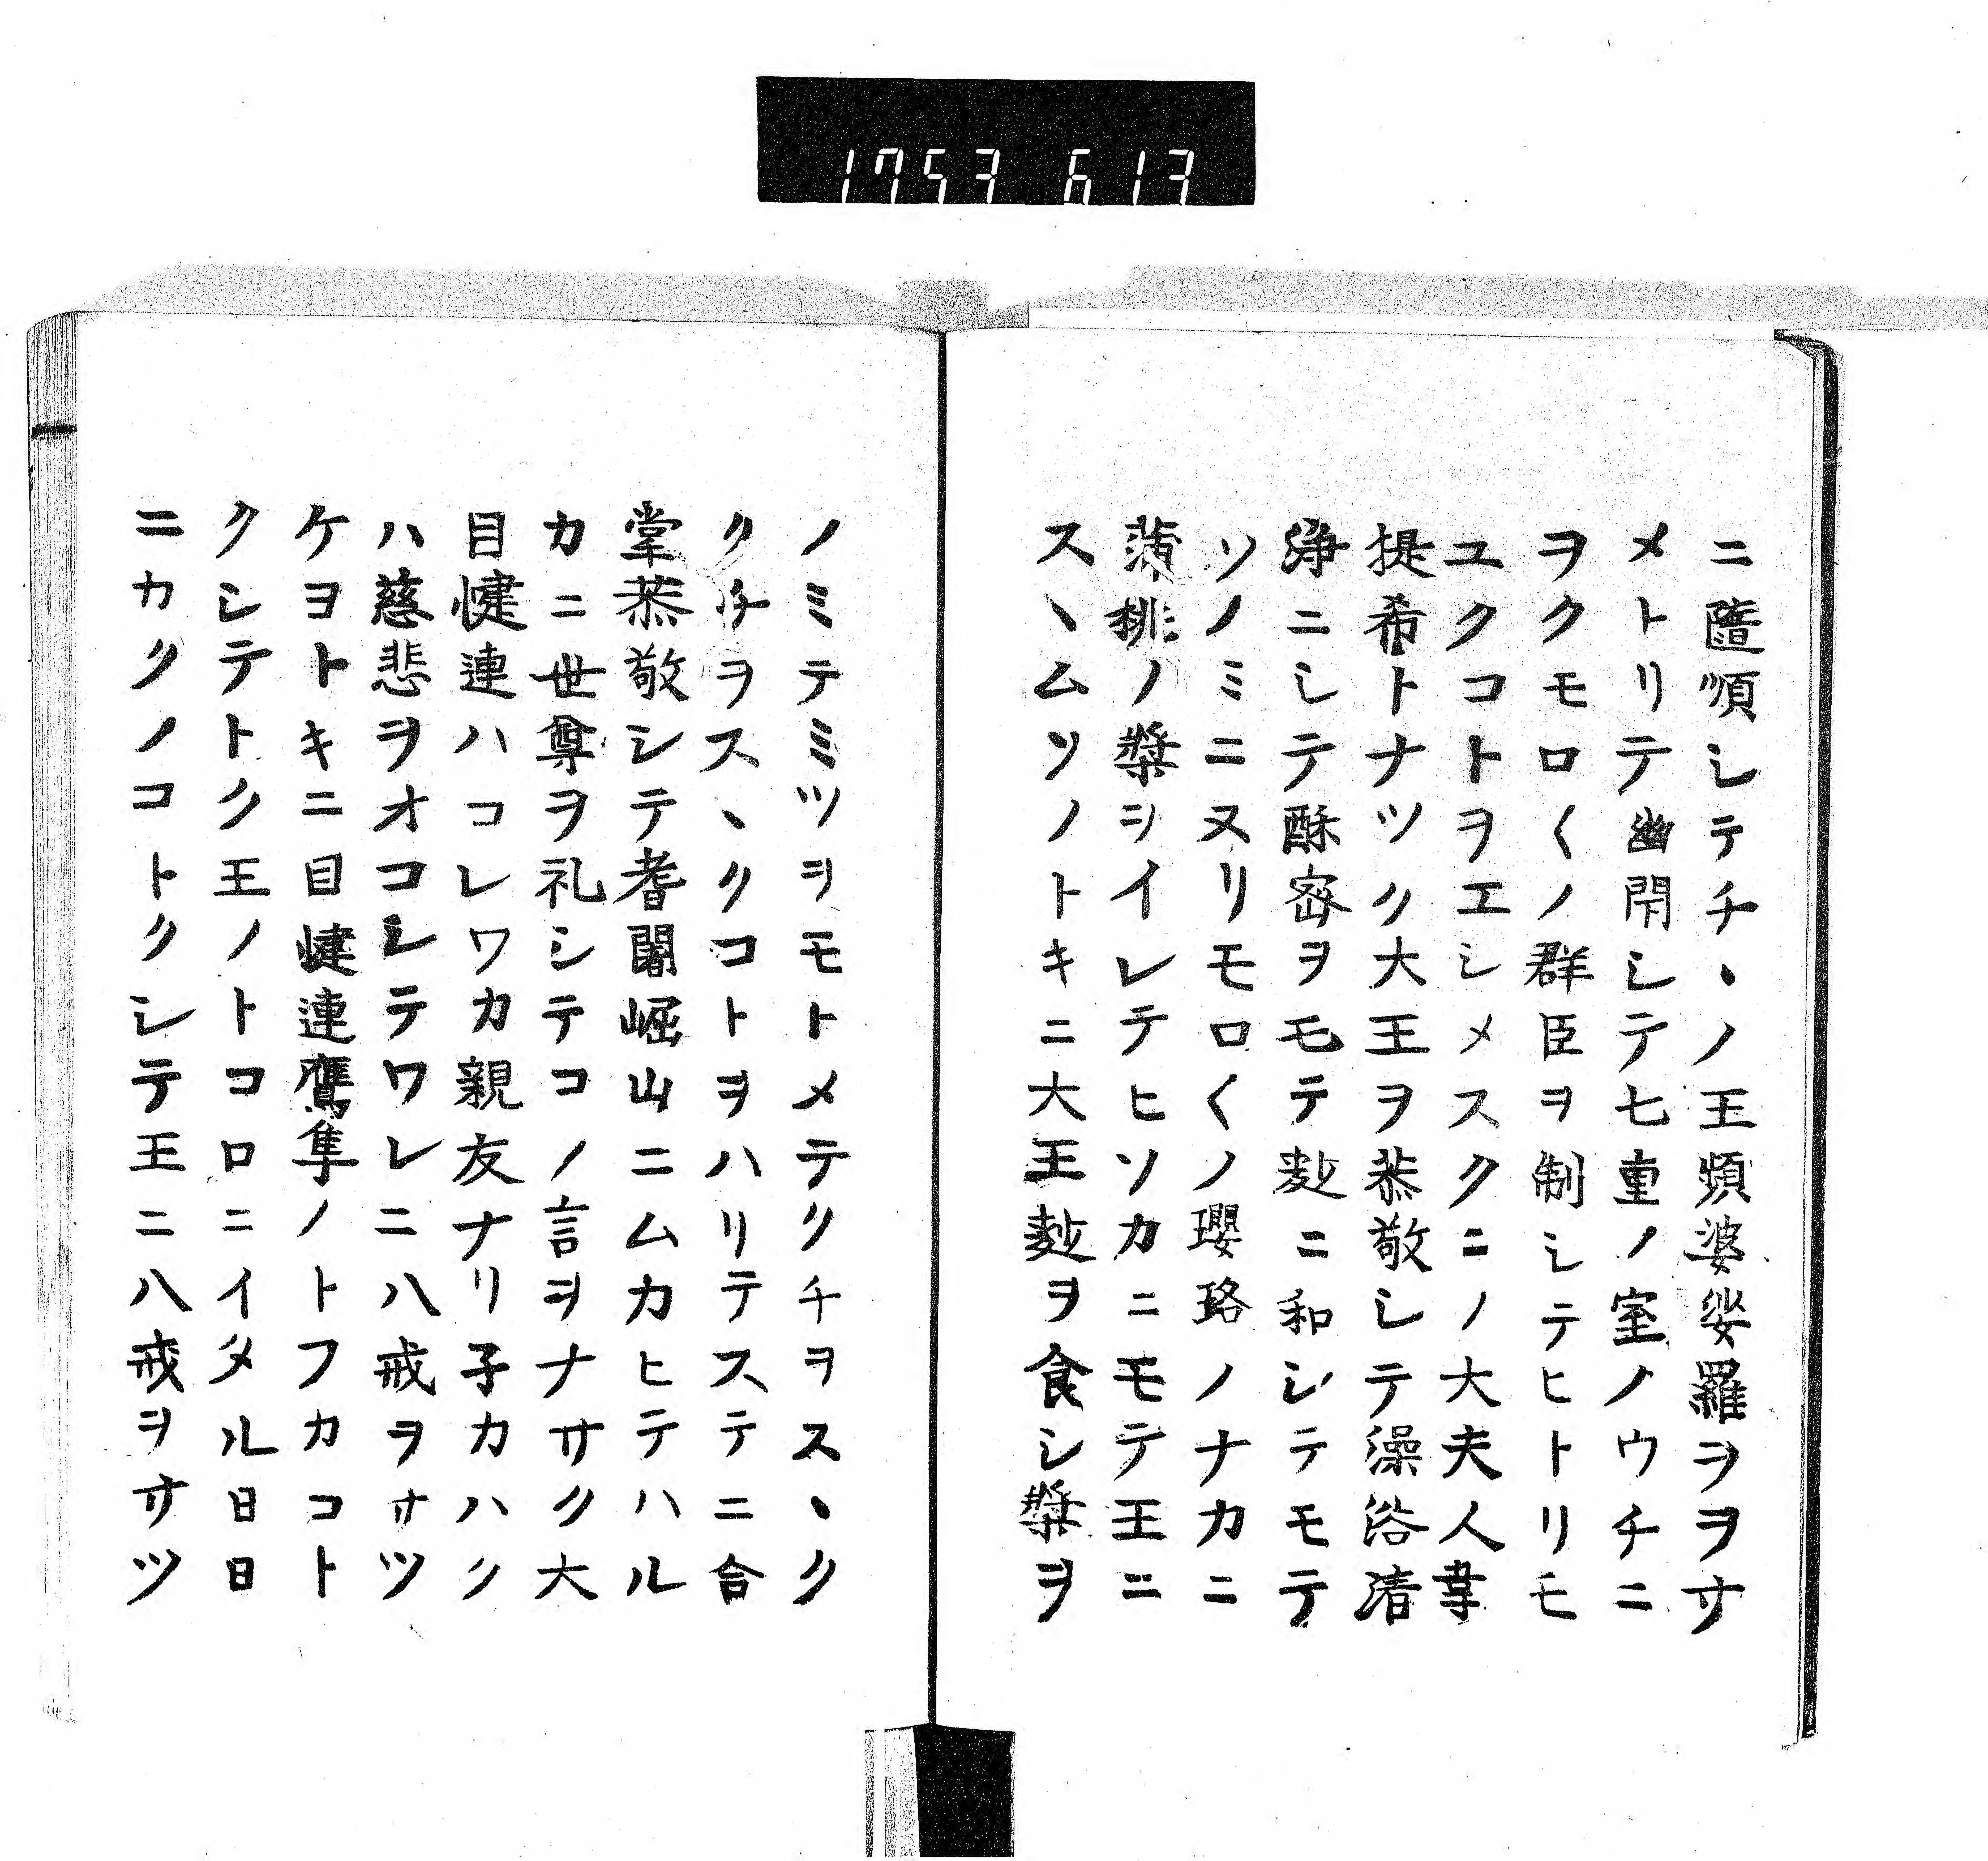 1753 613
ニ隨順シテチヽノ王頻婆娑羅ヲヲサ
メトリテ幽閇シテ七重ノ室ノウチニ
ヲクモロ〱ノ群臣ヲ制シテヒトリモ
ユクコトヲエシメスクニノ大夫人韋
提希トナツク大王ヲ恭敬シテ澡浴清
浄ニシテ酥蜜ヲモテ麨ニ和シテモテ
ソノミニヌリモロ〱ノ瓔珞ノナカニ
蒲桃ノ漿シイレテヒソカニモテ王ニ
スヽムソノトキニ大王麨ヲ食シ漿ヲ
ノミテミツヲモトメテクチヲスヽク
クチヲスヽクコトヲハリテステニ合
掌恭敬シテ耆闍崛山ニムカヒテハル
カニ世尊ヲ礼シテコノ言ヲナサク大
目犍連ハコレワカ親友ナリ子カハク
ハ慈悲ヲオコシテワレニ八戒ヲサツ
ケヨトトキニ目犍連鷹隼ノトフカコト
クシテトク王ノトコロニイタル日日
ニカクノコトクシテ王ニ八戒ヲサツ